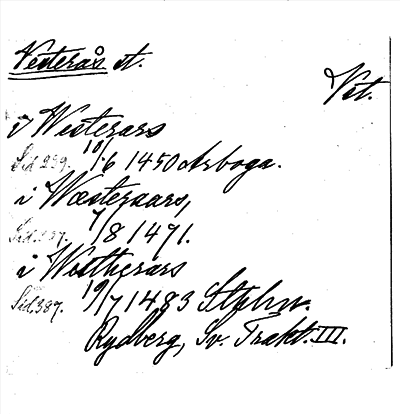 Vesterås st.
Vst.
i Westerars
Sid. 239. 10/6 1450 Arboga.
i Wæsteraars,
7/8 1471.
i Westherars
Sid. 387. 19/7 1483 Sthlm.
Rydberg, Sv. Trakt. III.